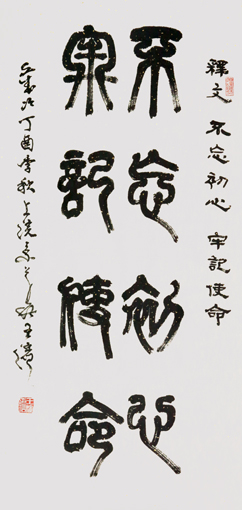 釋文 不忘初心 牢記使命
不忘初心
牢記使命
丁酉季秋上浣